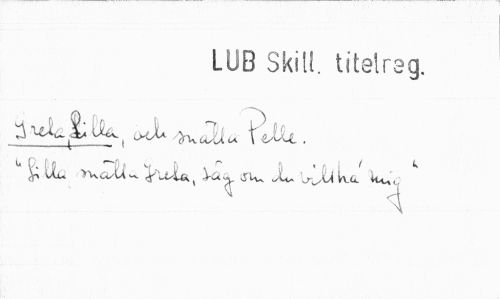 LUB Skill. titelreg.
Greta, Lilla, och snälla Pelle.
"Lilla, snälla Greta, säg om du vill ha' mig"